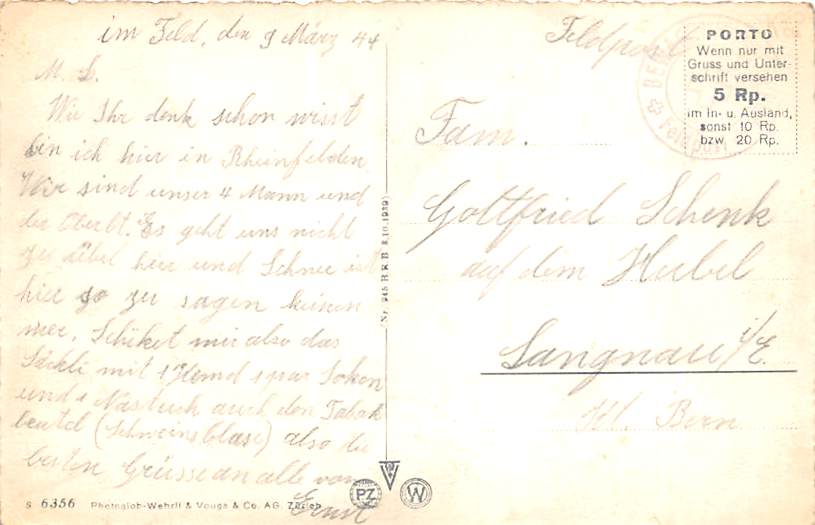 im Feld, den 9 März 44
M. L.
Wie Ihr denk schon wisst
bin ich hier in Rheinfelden
Wir sind unser 4 Mann und
der Oberlt. Es geht uns nicht
zu übel hier und Schnee ist
hier so zu sagen keinen
mer. Schiket mir also das
Säckli mit 1 Hemd 1 par Soken
und 1 Nastuch auch den Tabak
beutel (Schweinsblase) also die
besten Grüsse an alle von
Ernst
Feldpost
PORTO
Wenn nur mit
Gruss und Unter-
schrift versehen
5 Rp.
im In- u. Ausland,
sonst 10 Rp.
bzw. 20 Rp.
Feldpost
Fam.
Gottfried Schenk
auf dem Hubel
Langnau i/E.
Kt. Bern
(Nr. 245 BRB 3.10.1939)
S 6356 Photoglob-Wehrli & Vouga & Co. AG. Zürich
PZ W